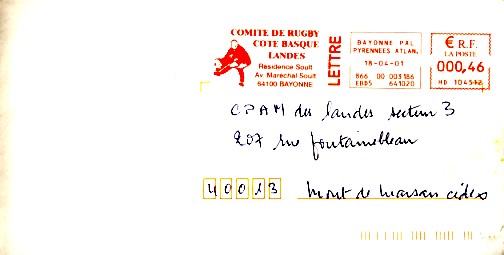 COMITE DE RUGBY
COTE BASQUE
LANDES
Residence Soult
Av. Marechal Soult
64100 BAYONNE
LETTRE
BAYONNE PAL
PYRENNEES ATLAN.
18-04-01
866 00 003186
EBD5 641020
€ R.F.
LA POSTE
000,46
HD 104512
CPAM des landes secteur 3
207 rue fontainebleau
40013 Mont de marsan cidex